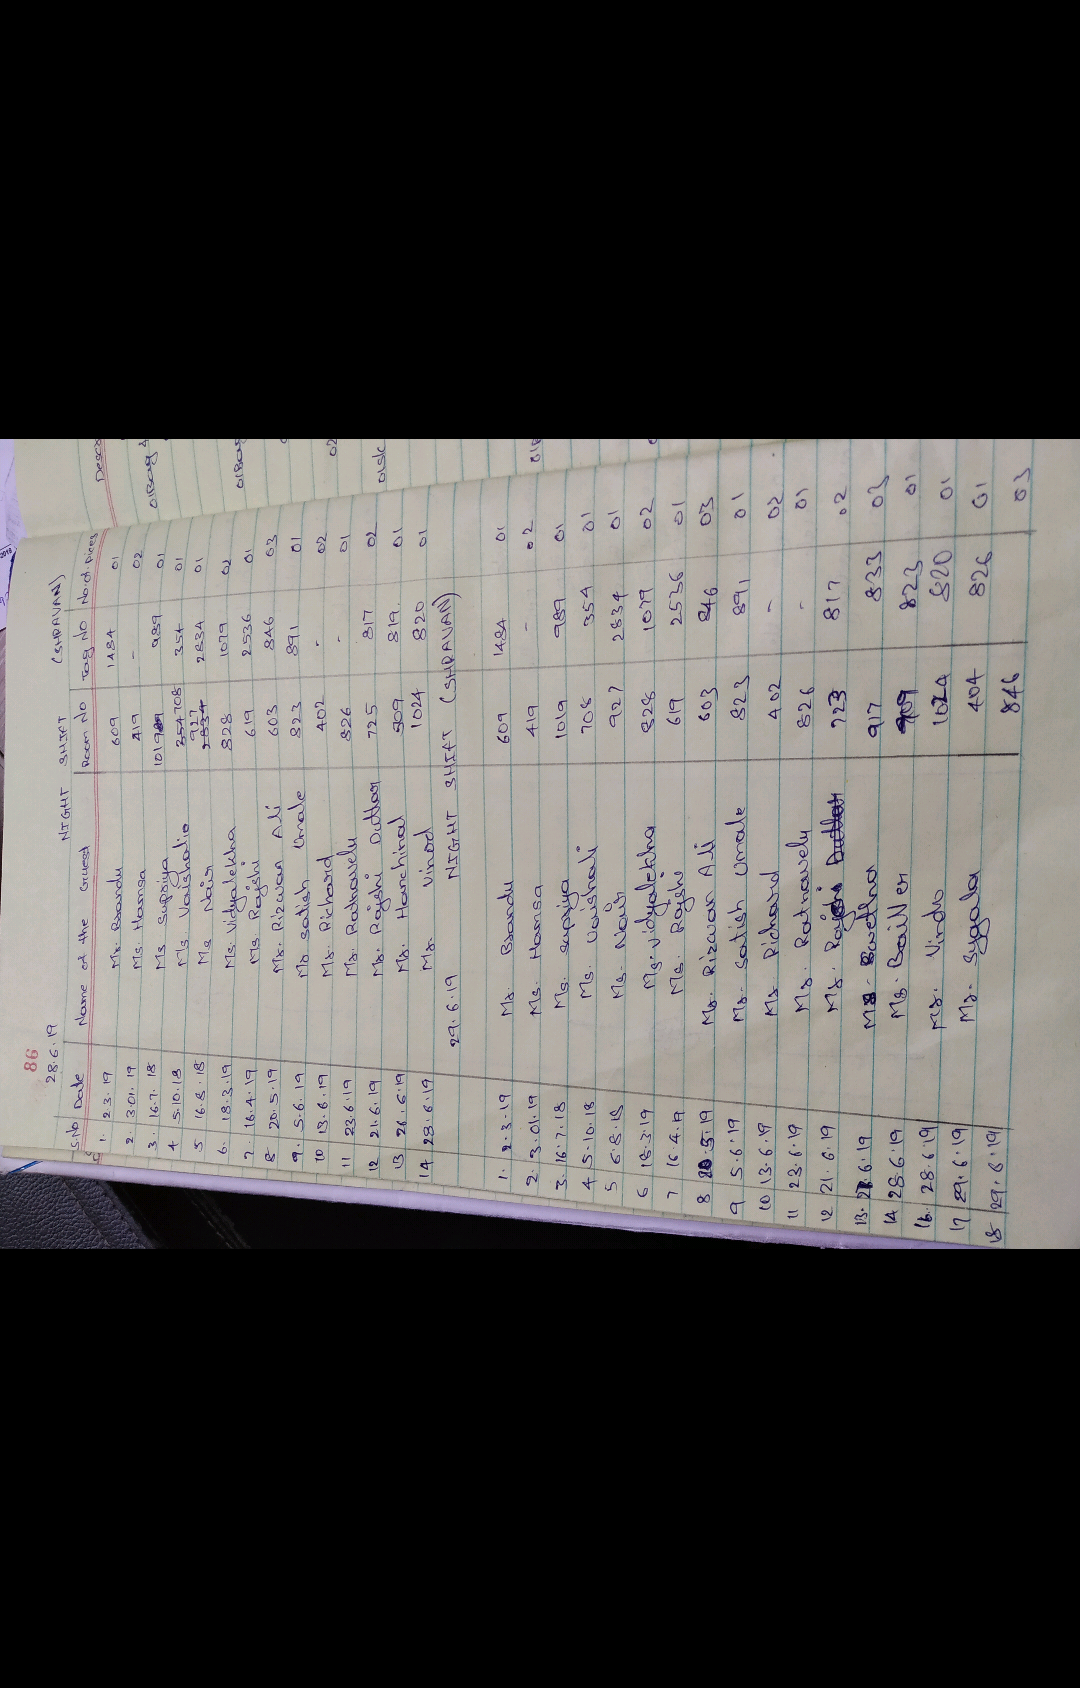 86
28.6.19 NIGHT SHIFT (SHRAVAN)
S.No Date Name of the Guest Room No Tag No No.of.pices
1. 2.3.19 Mr. Brandy 609 1484 01
2. 3.01.19 Ms. Hamsa 419 - 02
3. 16.7.18 Ms Supriya 1019 989 01
4 5.10.18 Ms. Vaishali 354 708 354 01
5 16.8.18 Ms Nair 927 2834 2834 01
6. 18.3.19 Ms. Vidyalekha 828 1079 02
7. 16.4.19 Ms. Rajshi 619 2536 01
8 20.5.19 Mr. Rizwan Ali 603 846 03
9. 5.6.19 Mr. Satish Umale 823 891 01
10 13.6.19 Mr. Richard 402 - 02
11 23.6.19 Mr. Rathavelu 826 - 01
12 21.6.19 Mr. Rajshi Duttar 725 817 02
13 26.6.19 Mr. Hanchinal 509 819 01
14 28.6.19 Mr. Vinod 1024 820 01
29.6.19 NIGHT SHIFT (SHRAVAN)
1. 2.3.19 Mr. Brandy 609 1484 01
2. 3.01.19 Ms. Hamsa 419 - 02
3. 16.7.18 Ms. Supriya 1019 989 01
4 5.10.18 Ms. Vaishali 708 354 01
5 6.8.18 Ms. Nair 927 2834 01
6 18.3.19 Ms. Vidyalekha 828 1079 02
7 16.4.19 Ms. Rajshi 619 2536 01
8 20.5.19 Mr. Rizwan Ali 603 846 03
9 5.6.19 Mr. Satish Umale 823 891 01
10 13.6.19 Mr. Richard 402 - 02
11 23.6.19 Mr. Rathavelu 826 - 01
12 21.6.19 Mr. Rajshi Duttar 723 817 02
13. 28.6.19 917 833 03
14 28.6.19 Mr. Bailler 909 823 01
16. 28.6.19 Mr. Vindo 1024 820 01
17 29.6.19 Mr. Sygala 404 826 01
18 29.6.19 846 03